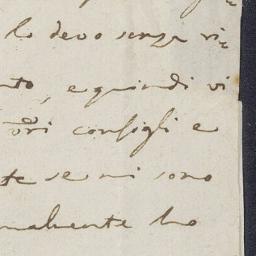 lo devo senza ri=
nto, e quindi vi
vostri consigli e
te se mi sono
nalmente ho